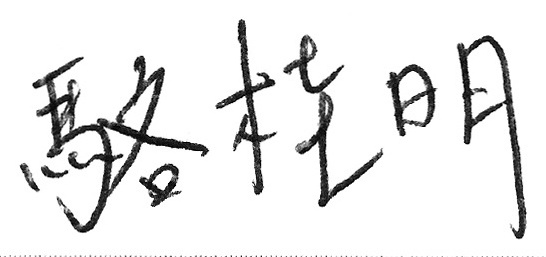 駱桂明